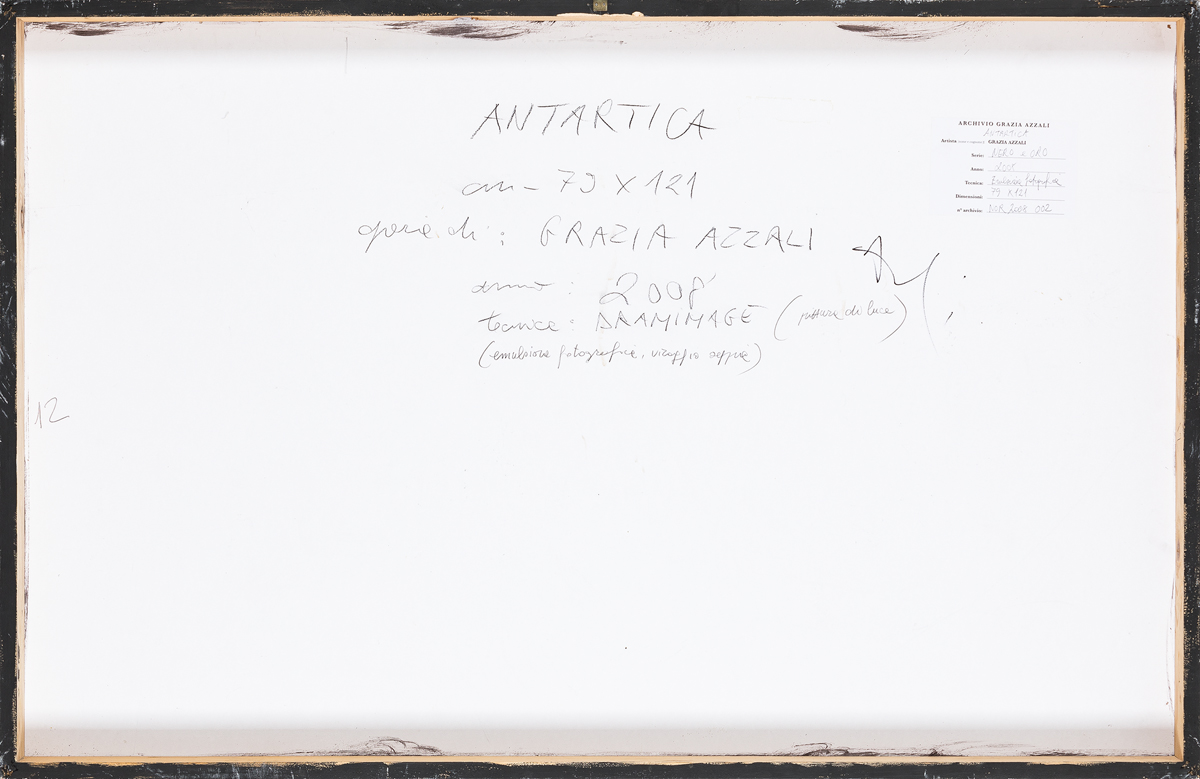 ANTARTICA
cm - 79 X 121
opera di : GRAZIA AZZALI
anno : 2008
tecnica : DRAMIMAGE (pittura di luce)
(emulsione fotografica, viraggio seppia)
12
ARCHIVIO GRAZIA AZZALI
ANTARTICA
Artista GRAZIA AZZALI
Serie: NERO e ORO
Anno: 2008
Tecnica: Emulsione fotografica
Dimensioni: 79 X 121
n° archivio: 2008 002